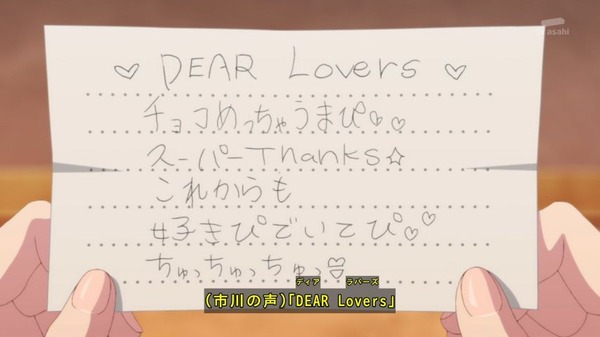 asahi
♡ DEAR Lovers ♡
チョコめっちゃうまぴ♡♡
スーパーThanks☆
これからも
好きぴでいてぴ♡♡
ちゅっちゅっちゅっ
ディア ラバーズ
(市川の声)「DEAR Lovers」